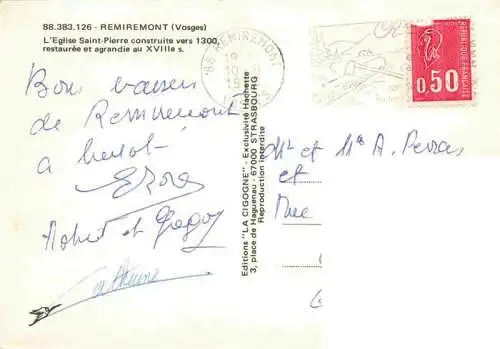 88.383.126 - REMIREMONT (Vosges)
L'Eglise Saint-Pierre construite vers 1300,
restaurée et agrandie au XVIIIe s.
88 REMIREMONT
REPUBLIQUE FRANÇAISE
0,50
Bons baisers
de Remiremont
a bientôt
Robert et
Catherine
Editions "LA CIGOGNE" - Exclusivité Hachette
3, place de Haguenau - 67000 STRASBOURG
Reproduction interdite
Mr et Me A.
et